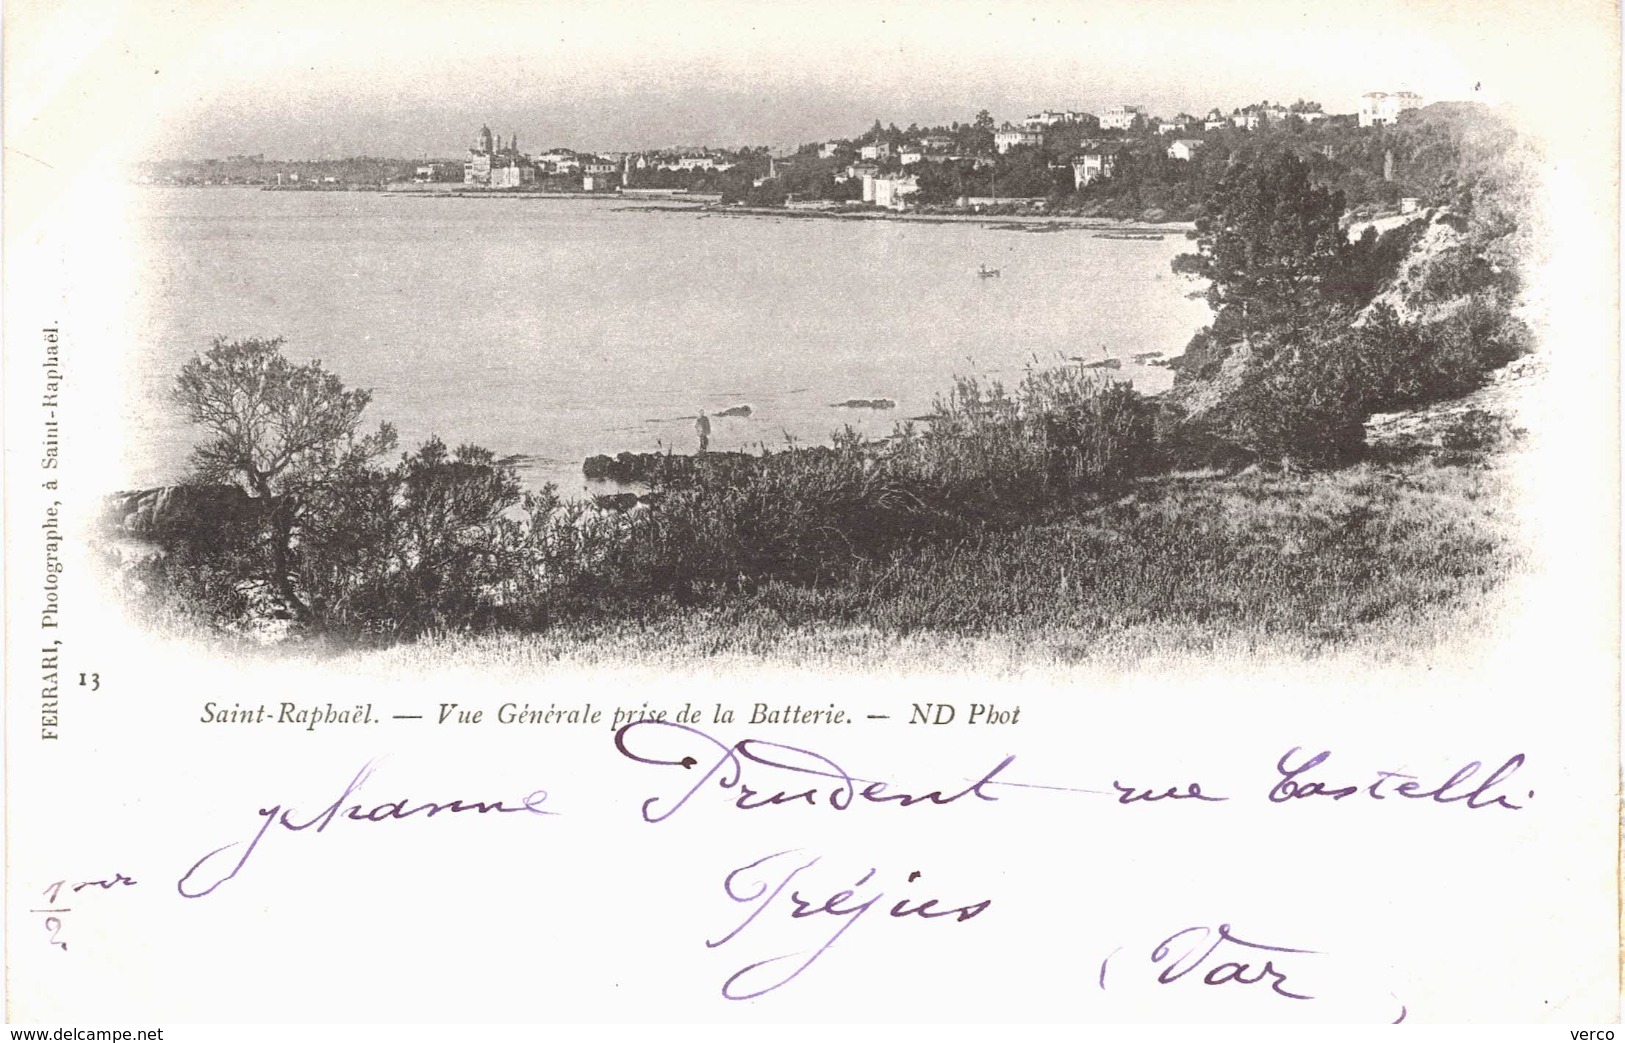 FERRARI, Photographe, à Saint-Raphaël.
13
Saint-Raphaël. — Vue Générale prise de la Batterie. — ND Phot
Jehanne Prudent rue Castelli
Fréjus
(Var)
1
2
www.delcampe.net
verco